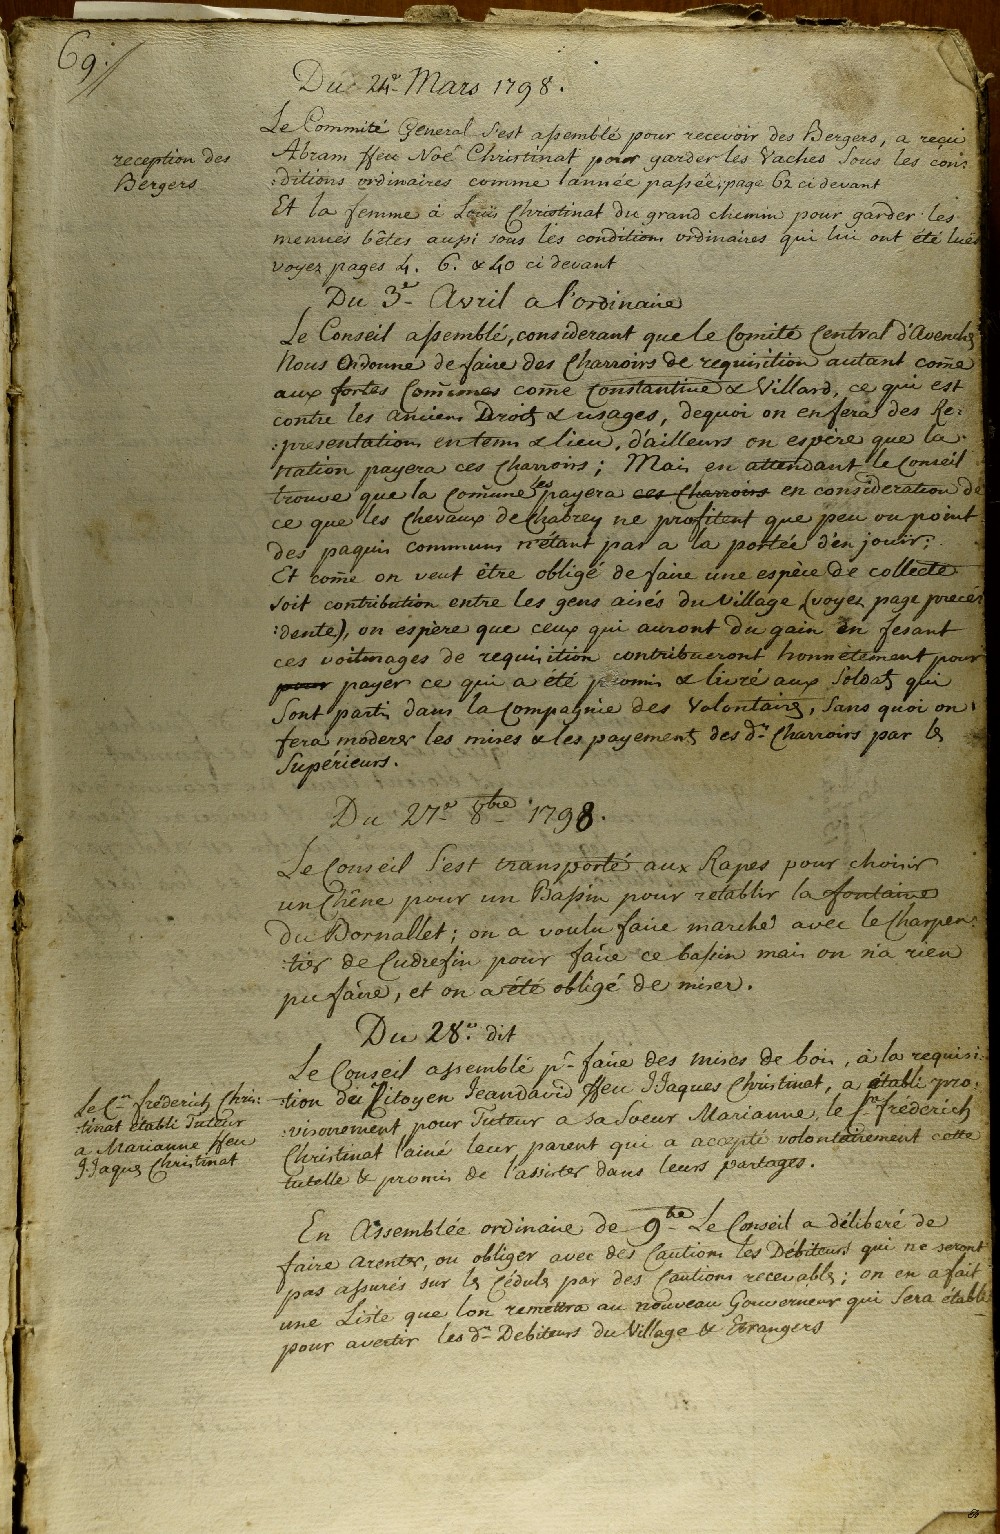 69.
Du 24e Mars 1798.
Le Commité General s'est assemblé pour recevoir des Bergers, a reçu
reception des Bergers
Abram ffeu Noé Christinat pour garder les Vaches sous les con:
:ditions ordinaires comme l'année passée, page 62 ci devant
Et la femme à Louïs Christinat du grand chemin pour garder les
menues bêtes aussi sous les conditions ordinaires qui lui ont été luës
voyez pages 4. 6. & 40 ci devant
Du 3e Avril a l'ordinaire
Le Conseil assemblé, considerant que le Comité Central d'Avenches
Nous Ordonne de faire des Charroirs de requisition autant come
aux fortes Comunes come Constantine & Villard, ce qui est
contre les anciens Droits & usages, dequoi on enfera des Re:
:presentations en tems & lieu, d'ailleurs on espère que la
nation payera ces Charroirs; Mais en attendant le Conseil
trouve que la Comune les payera ces Charroirs en consideration de
ce que les Chevaux de Chabrey ne profitent que peu ou point
des paquis communs n'étant pas a la portée d'en jouir;
Et come on veut être obligé de faire une espèce de collecte
soit contribution entre les gens aisés du Village (voyez page précé
:dente), on espère que ceux qui auront du gain en fesant
ces voiturages de requisition contribueront honnètement pour
pour payer ce qui a été promis & livré aux Soldats qui
Sont partis dans la Compagnie des Volontaires, Sans quoi on
fera moderer les mises & les payements des dts Charroirs par les
Supérieurs.
Du 27e 8bre 1798.
Le Conseil s'est transporté aux Rapes pour choisir
un Chêne pour un Bassin pour retablir la fontaine
du Bornallet; on a voulu faire marché avec le Charpen:
:tier de Cudrefin pour faire ce bassin mais on n'a rien
pu faire, et on a été obligé de miser.
Du 28e dit
Le Conseil assemblé pr faire des mises de bois, à la requisi:
:tion du Citoyen Jeandavid ffeu JJaques Christinat, a établi pro:
:visoirement pour Tuteur a sa Soeur Marianne, le fréderich
Christinat l'ainé leur parent qui a accepté volontairement cette
tutelle & promis de l'assister dans leurs partages.
Le Cn fréderich Chris:
:tinat établi Tuteur
a Marianne ffeu
JJaques Christinat
En Assemblée ordinaire de 9bre Le Conseil a déliberé de
faire arenter, ou obliger avec des Cautions les Débiteurs qui ne seront
pas assurés sur les Cédules par des Cautions recevables; on en a fait
une Liste que l'on remettra au nouveau Gouverneur qui Sera établi
pour avertir les dts Debiteurs du Village & Etrangers